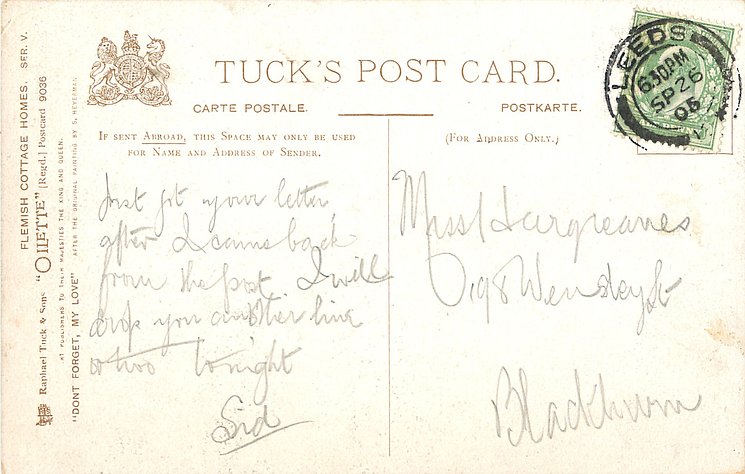 TUCK'S POST CARD.
CARTE POSTALE.
POSTKARTE.
IF SENT ABROAD, THIS SPACE MAY ONLY BE USED
FOR NAME AND ADDRESS OF SENDER.
(FOR ADDRESS ONLY.)
LEEDS
630PM
SP 26
05
Just got your letter
after I came back
from the post I will
drop you another line
or two tonight
Sid
Miss Hargreaves
198 Wensley St
Blackburn
FLEMISH COTTAGE HOMES. SER. V.
Raphael Tuck & Sons' "OILETTE" (Regd.) Postcard 9036
ART PUBLISHERS TO THEIR MAJESTIES THE KING AND QUEEN.
"DONT FORGET, MY LOVE" AFTER THE ORIGINAL PAINTING BY S. HEYERMAN